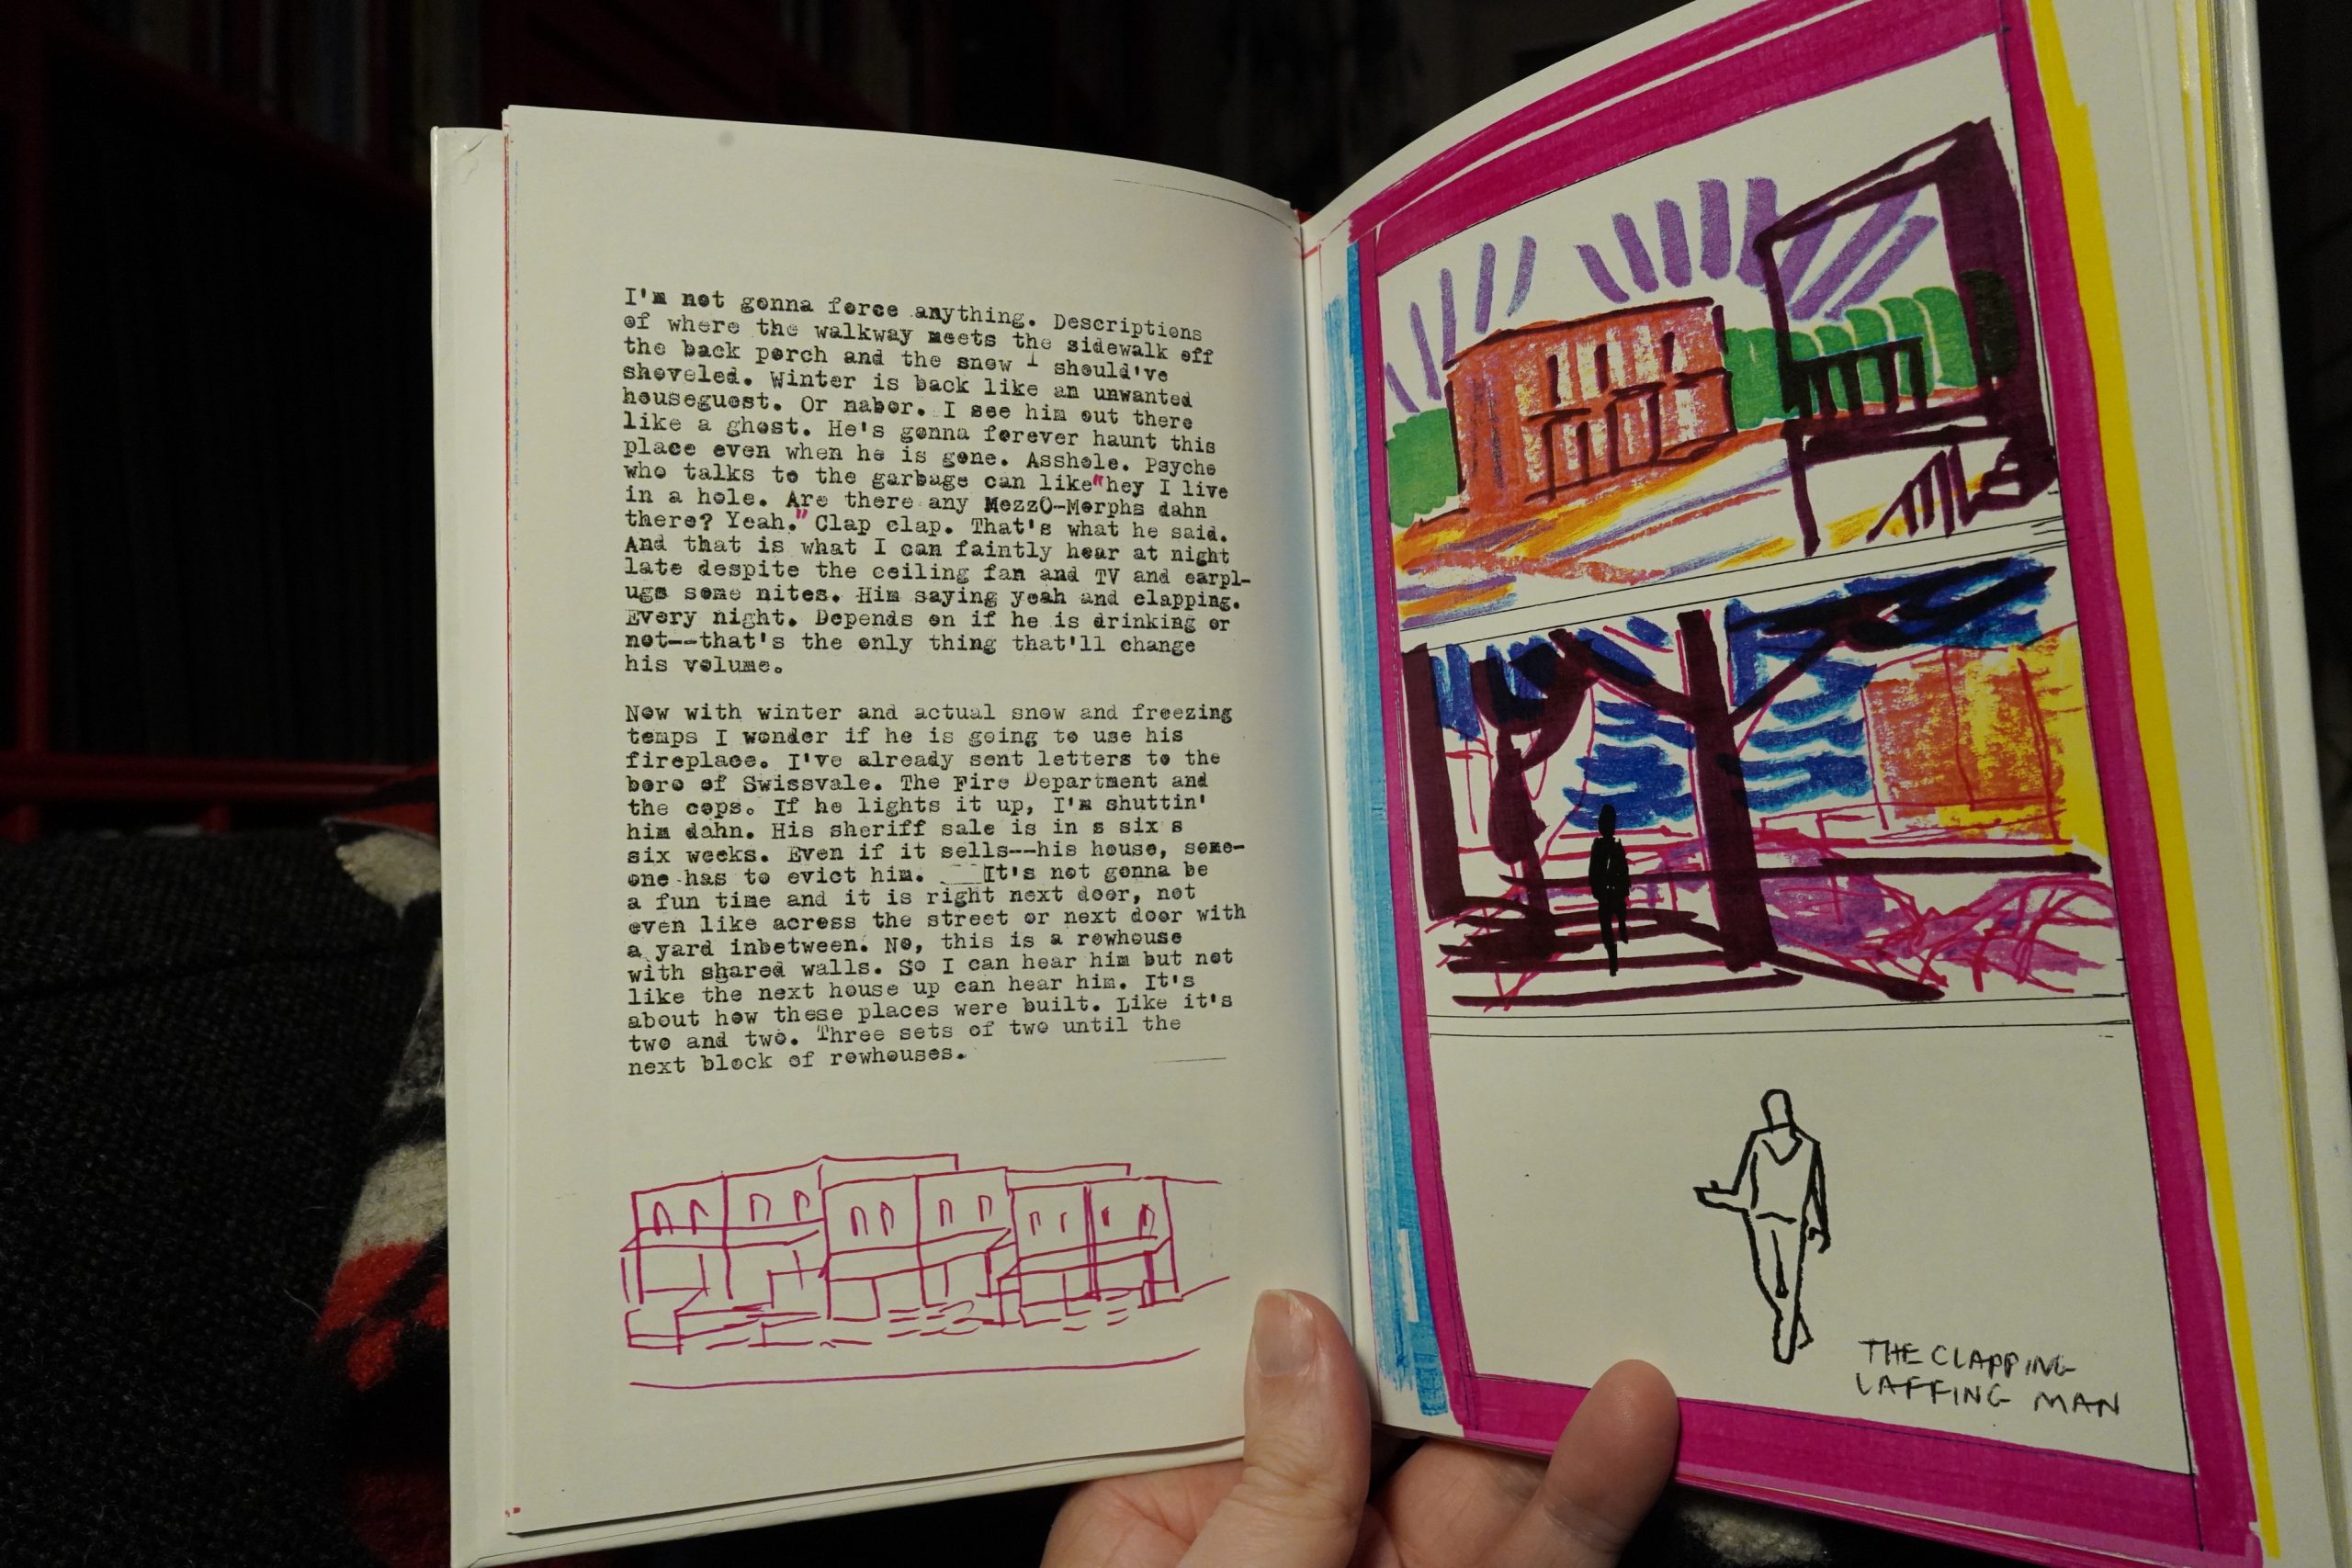 I'm not gonna force anything. Descriptions
of where the walkway meets the sidewalk off
the back porch and the snow I should've
shoveled. Winter is back like an unwanted
houseguest. Or nabor. I see him out there
like a ghost. He's gonna forever haunt this
place even when he is gone. Asshole. Psycho
who talks to the garbage can like"hey I live
in a hole. Are there any MezzO-Morphs dahn
there? Yeah." Clap clap. That's what he said.
And that is what I can faintly hear at night
late despite the ceiling fan and TV and earpl-
ugs some nites. Him saying yeah and clapping.
Every night. Depends on if he is drinking or
not--that's the only thing that'll change
his volume.
Now with winter and actual snow and freezing
temps I wonder if he is going to use his
fireplace. I've already sent letters to the
boro of Swissvale. The Fire Department and
the cops. If he lights it up, I'm shuttin'
him dahn. His sheriff sale is in s six s
six weeks. Even if it sells--his house, some-
one has to evict him. It's not gonna be
a fun time and it is right next door, not
even like across the street or next door with
a yard inbetween. No, this is a rowhouse
with shared walls. So I can hear him but not
like the next house up can hear him. It's
about how these places were built. Like it's
two and two. Three sets of two until the
next block of rowhouses.
THE CLAPPING
LAFFING MAN